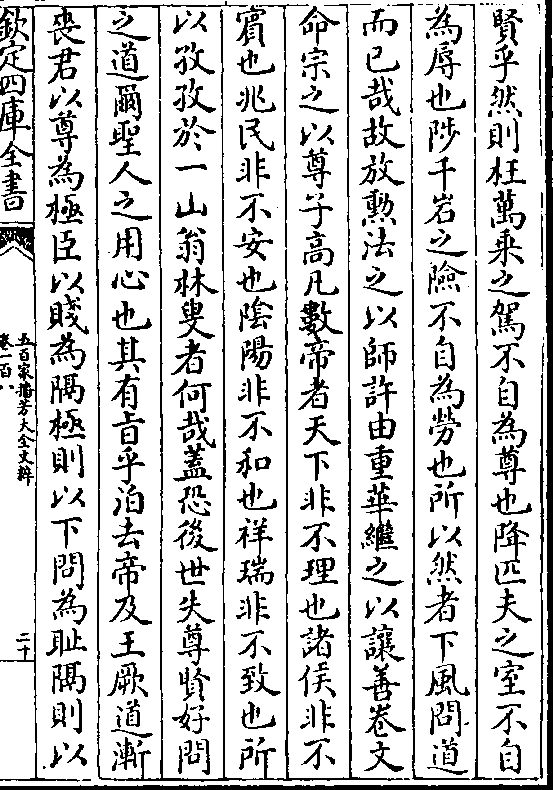 賢乎然則枉萬乘之駕不自為尊也降匹夫之室不自
為辱也陟千岩之險不自為勞也所以然者下風問道
而已哉故放勲法之以師許由重華繼之以讓善卷文
命宗之以尊子高凡數帝者天下非不理也諸侯非不
賓也兆民非不安也陰陽非不和也祥瑞非不致也所
以孜孜於一山翁林叟者何哉蓋恐後世失尊賢好問
之道爾聖人之用心也其有旨乎洎去帝及王厥道漸
喪君以尊為極臣以賤為隅極則以下問為耻隅則以
欽定四庫全書
五百家播芳大全文粹
卷一百八
二十